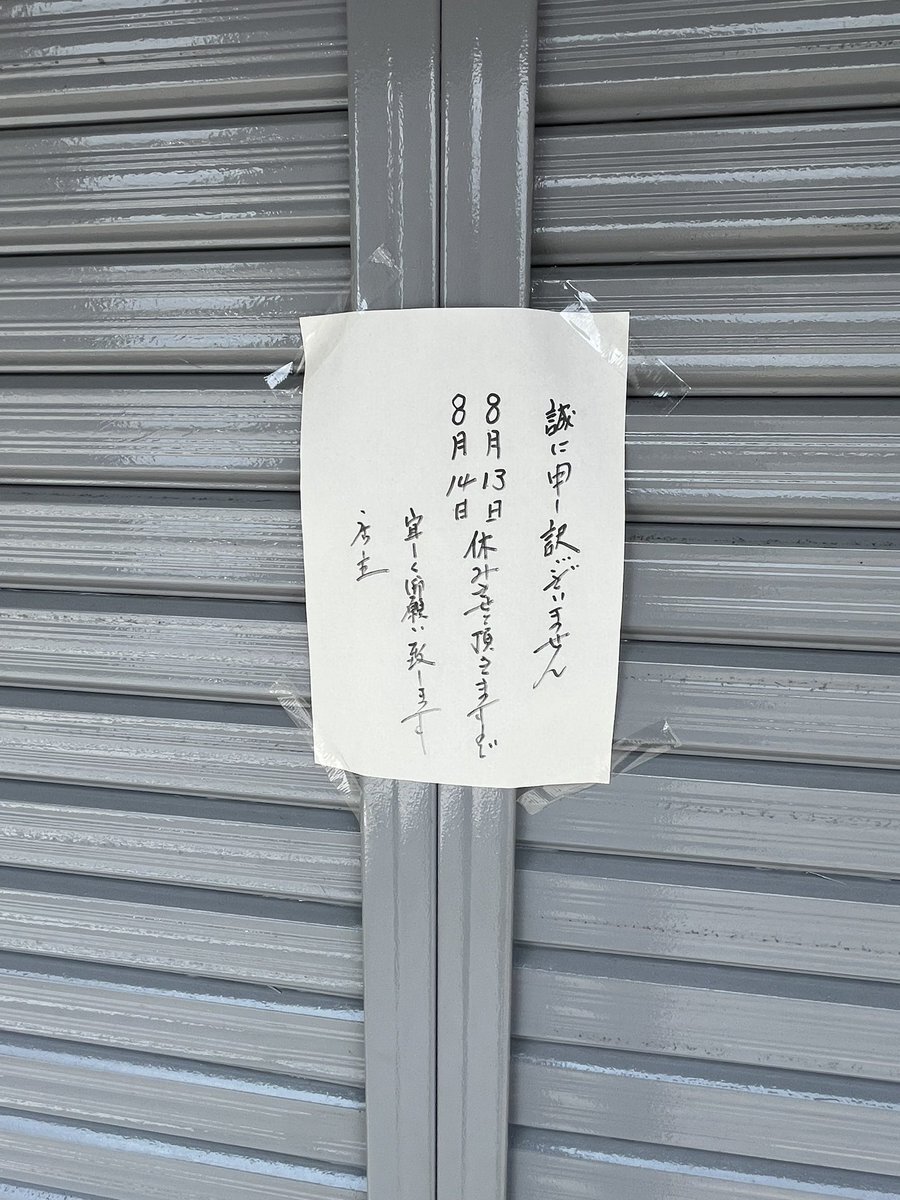 誠に申し訳ございません
8月13日休みを頂きますので
8月14日
宜しく御願い致します
店主